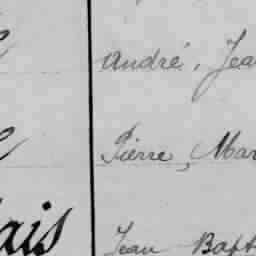 André, Jea
Pierre, Mar
ais Jean Bapt